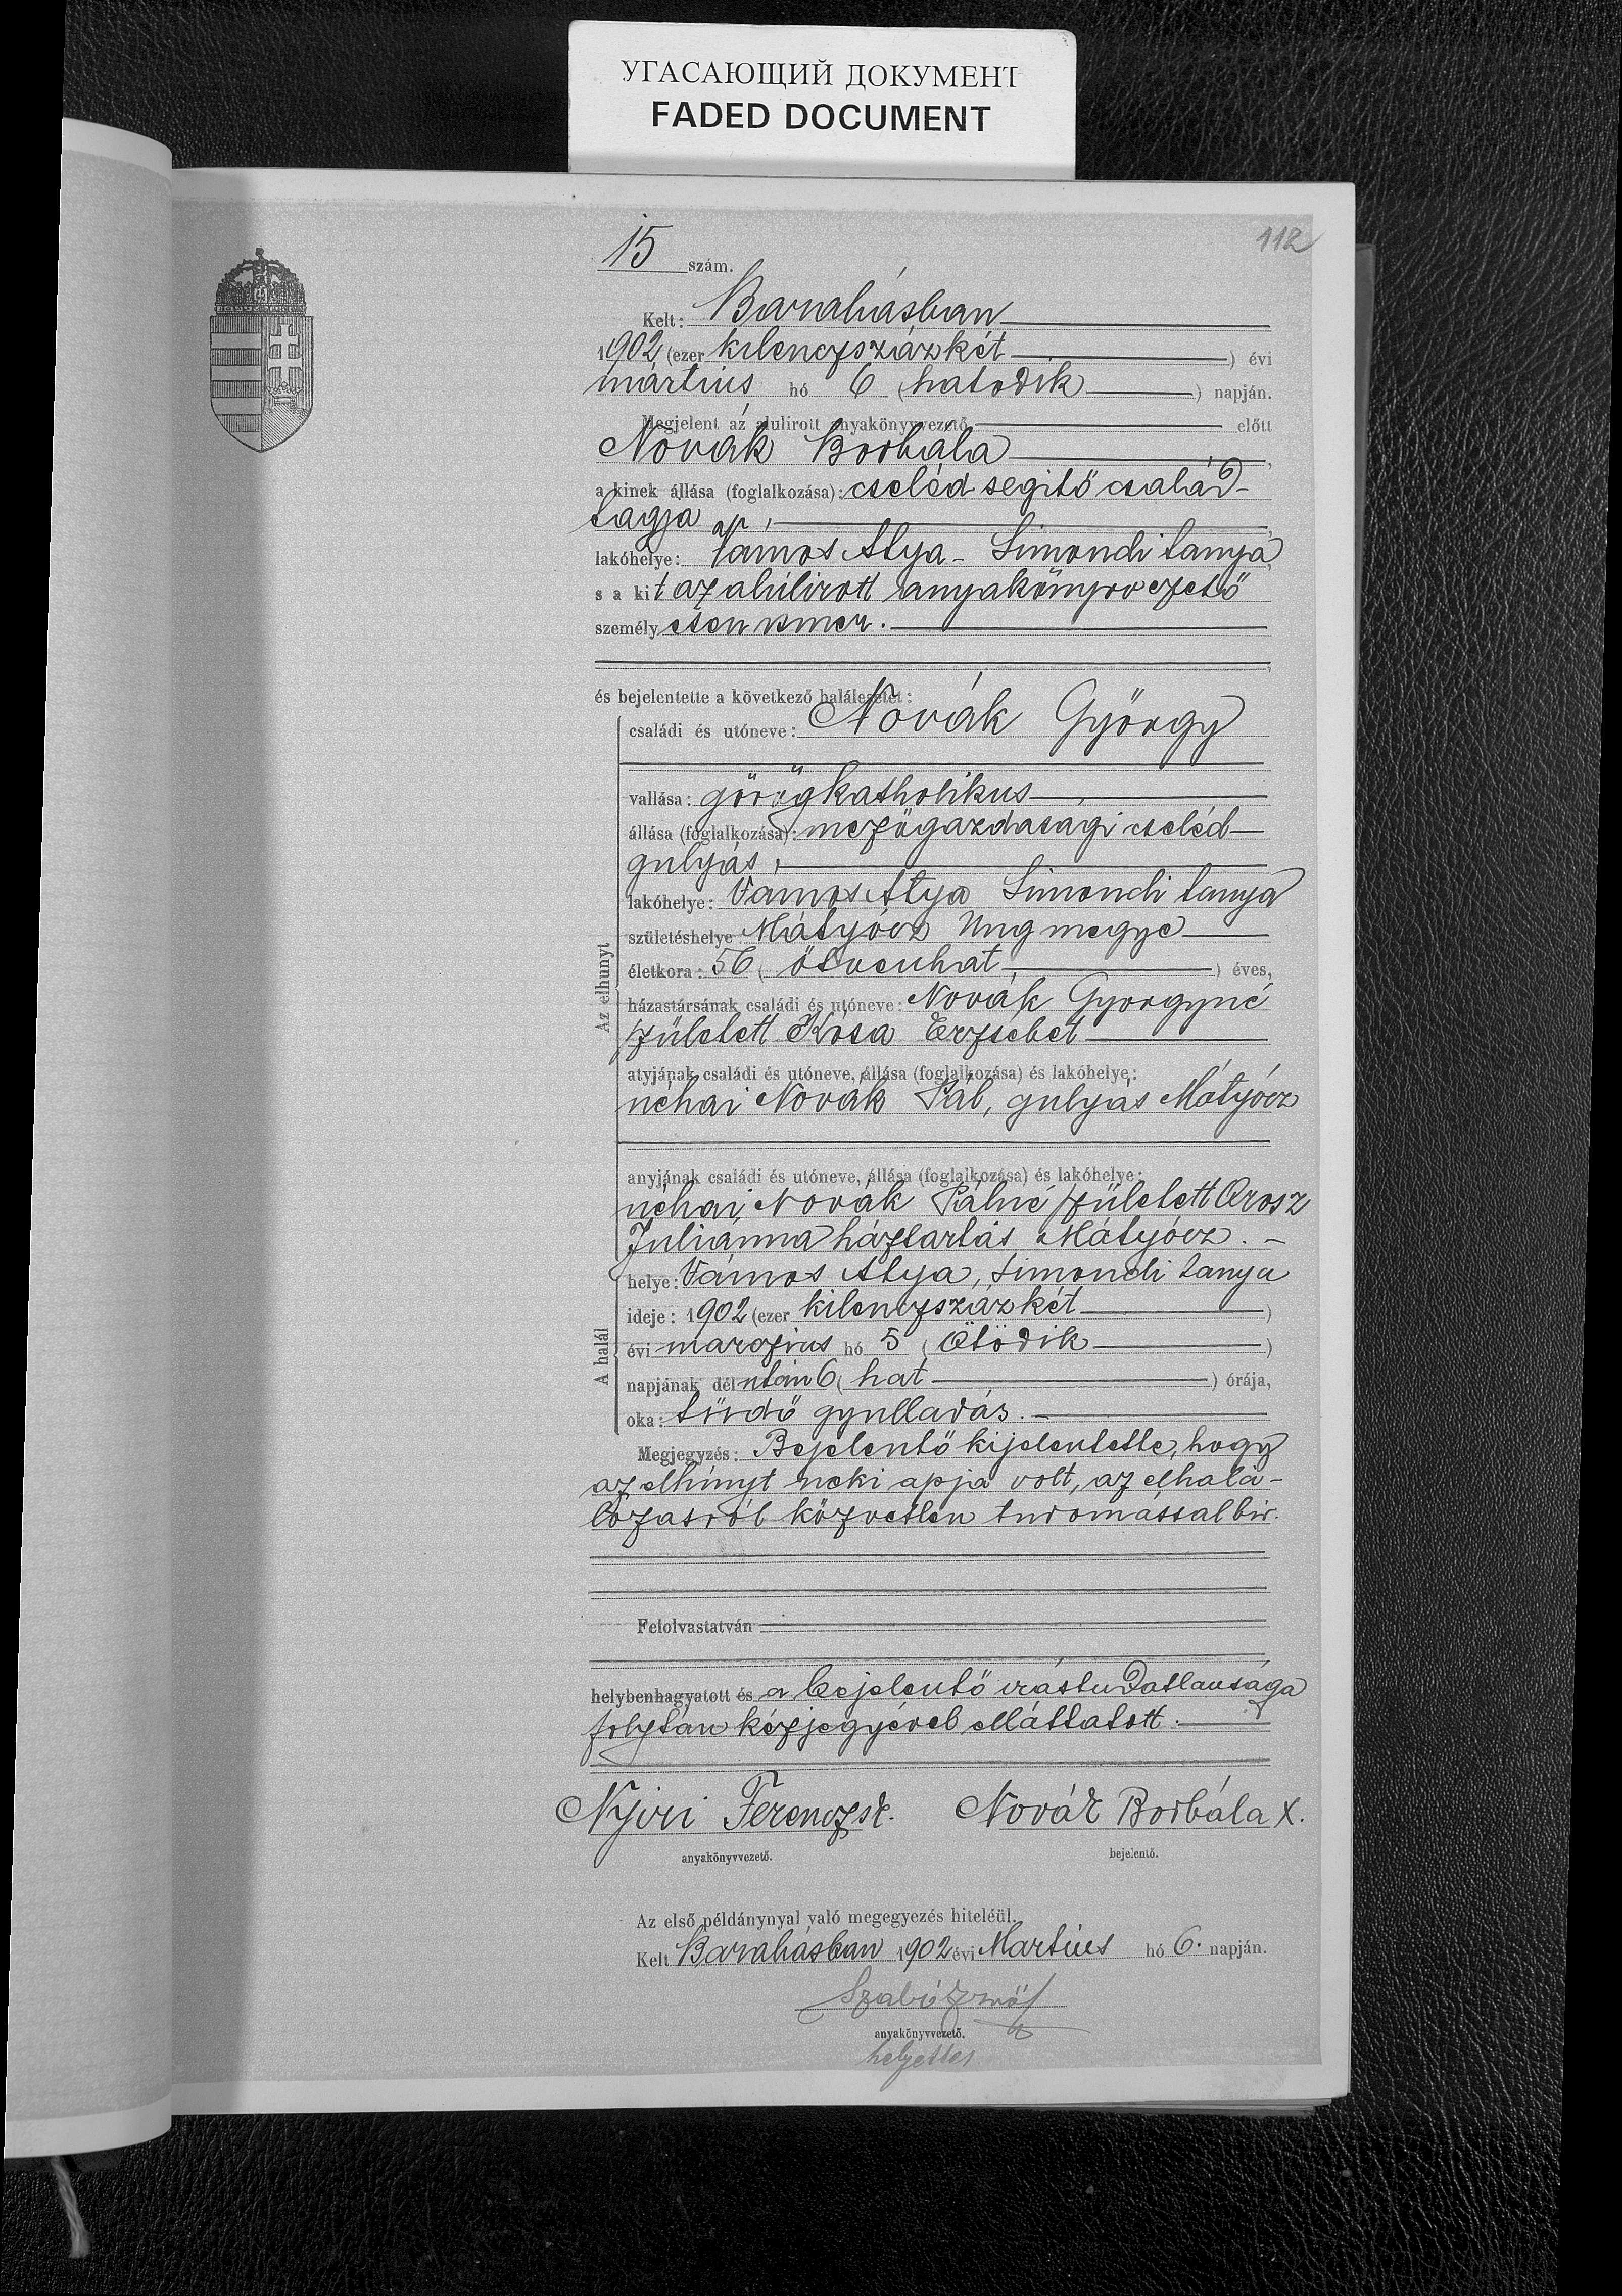 УГАСАЮЩИЙ ДОКУМЕНТ
FADED DOCUMENT
112
15 szám.
Kelt: Barabásban
1902 (ezer kilenczszázkét) évi
mártius hó 6 (hatodik) napján.
Megjelent az alulírott anyakönyvvezető előtt
Novák Borbála,
a kinek állása (foglalkozása): cseléd segitő család-
tagja
lakóhelye: Vámos Atya - Simondi tanya,
s a kit az alúlirott anyakönyvvezető
személyesen ismer.
és bejelentette a következő halálesetet:
Az elhunyt
családi és utóneve: Novák György
vallása: görögkatholikus
állása (foglalkozása): mezőgazdasagi cseléd
gulyás,
lakóhelye: Vamos Atya Simondi tanya
születéshelye: Mátyócz Ungmegye
életkora: 56 (ötvenhat) éves,
házastársának családi és utóneve: Novák Györgyné
született Kósa Erzsébet
atyjának családi és utóneve, állása (foglalkozása) és lakóhelye:
néhai Novák Pál, gulyás Mátyócz
anyjának családi és utóneve, állása (foglalkozása) és lakóhelye:
néhai Novák Pálné született Orosz
Juliánna háztartás Mátyócz. -
A halál
helye: Vámos Atya, Simondi tanya
ideje: 1902 (ezer kilenczszázkét)
évi marczius hó 5 (Ötödik)
napjának délután 6 (hat) órája,
oka: tüdő gyulladás.
Megjegyzés: Bejelentő kijelentette, hogy
az elhúnyt neki apja volt, az elhalá-
lozásról közvetlen tudomással bir.
Felolvastatván
helybenhagyatott és a bejelentő irástudatlansága
folytán kézjegyével elláttatott.
Nyiri Ferencz sk. Novák Borbála X.
anyakönyvvezető. bejelentő.
Az első példánynyal való megegyezés hiteléül.
Kelt Barabásban 1902 évi Martius hó 6. napján.
Szabó
anyakönyvvezető.
helyettes